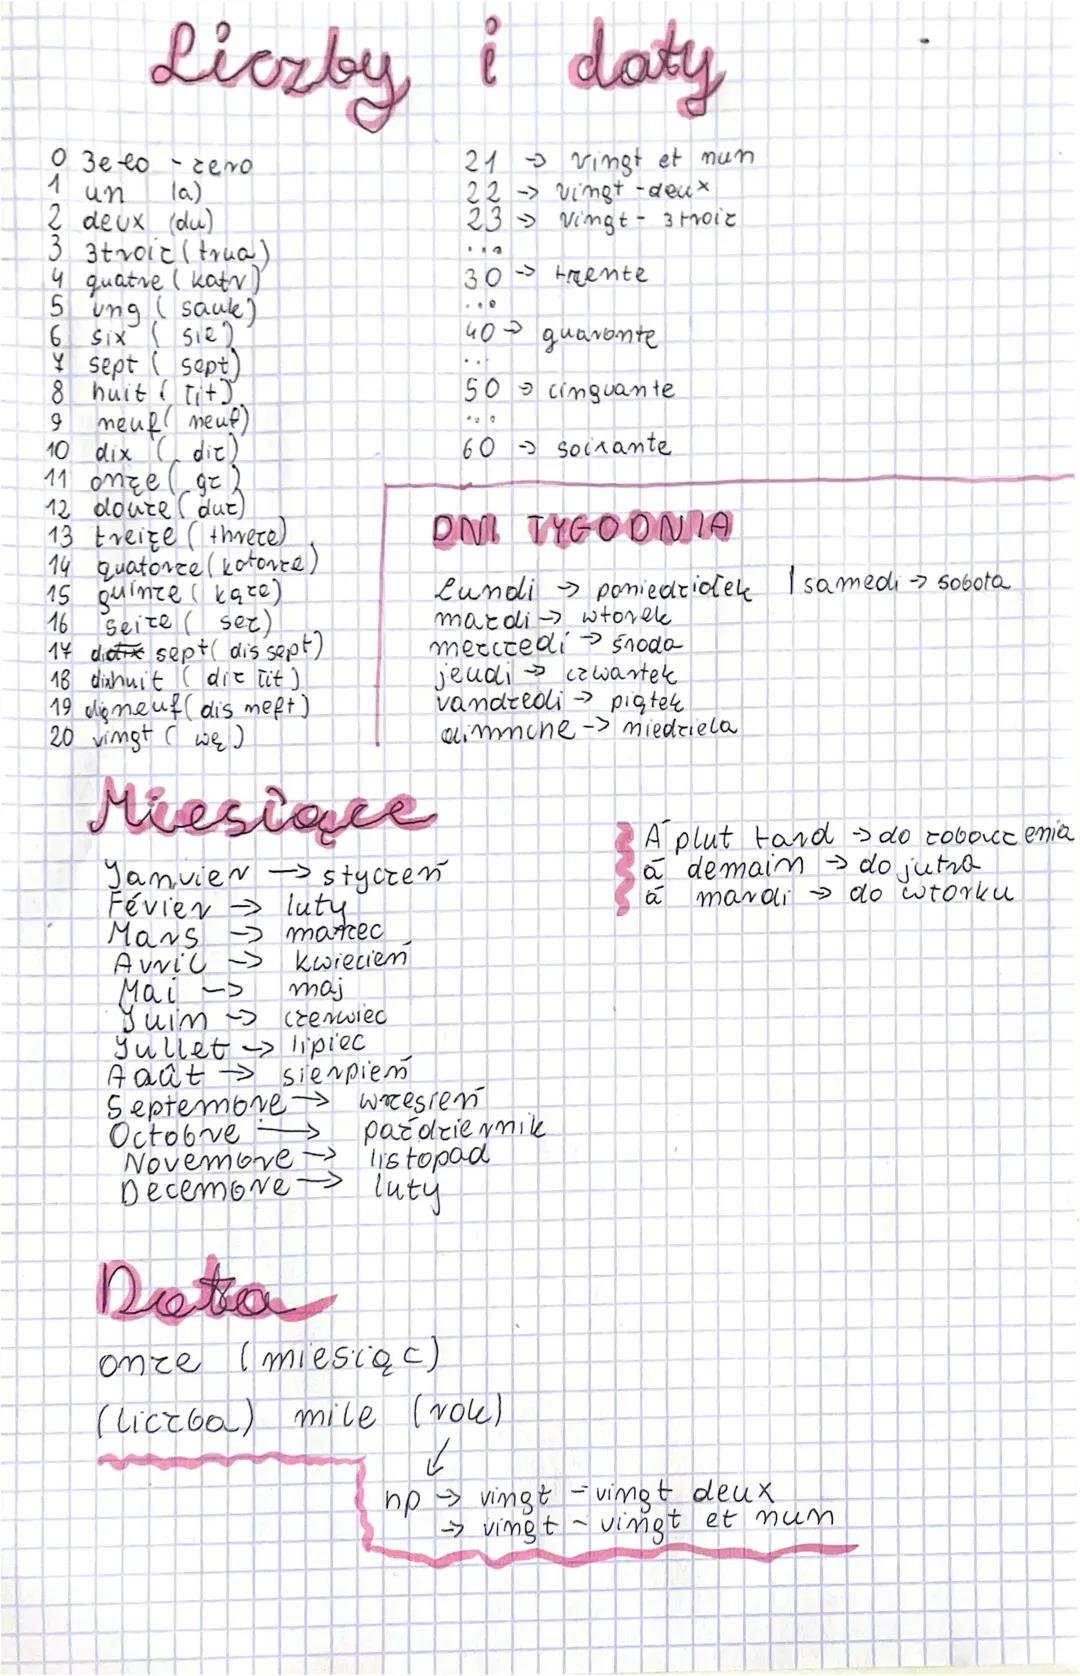 Liczby i daty
0 zero - zero
1 un (a)
2 deux (du)
3 3troiz (trua)
4 quatre (katr)
5 ung (sauk)
6 six (sie)
7 sept (sept)
8 huit (
9 neuf (neuf)
10 dix (diz)
11 onze (
12 douze (duz)
13 treize (threze)
14 quatorze (katorze)
15 quinze (kąze)
16 seize (sez)
17 sept (dis sept)
18 dixhuit (diz
19 digneuf (dis neft)
20 vingt (wę)
21 → vingt et nun
22 → vingt-deux
23 → vingt - 3troiz
...
30 → trente
...
40 → quaronte
...
50 → cinquante
...
60 → soixante
DNI TYGODNIA
Lundi → poniedziałek | samedi → sobota
mardi → wtorek
mercredi → środa
jeudi → czwartek
vandredi → piątek
dimmche → niedziela
Miesiące
Janvier → styczeń
Févier → luty
Mars → marzec
Avril → kwiecień
Mai → maj
Juin → czerwiec
Jullet → lipiec
Aaût → sierpień
Septembre → wrzesień
Octobre → październik
Novembre → listopad
Decembre → luty
Á plut tard → do zobaczenia
á demain → do jutra
á mardi → do wtorku
Data
onze (miesiąc)
(liczba) mile (rok)
np → vingt - vingt deux
→ vingt - vingt et nun